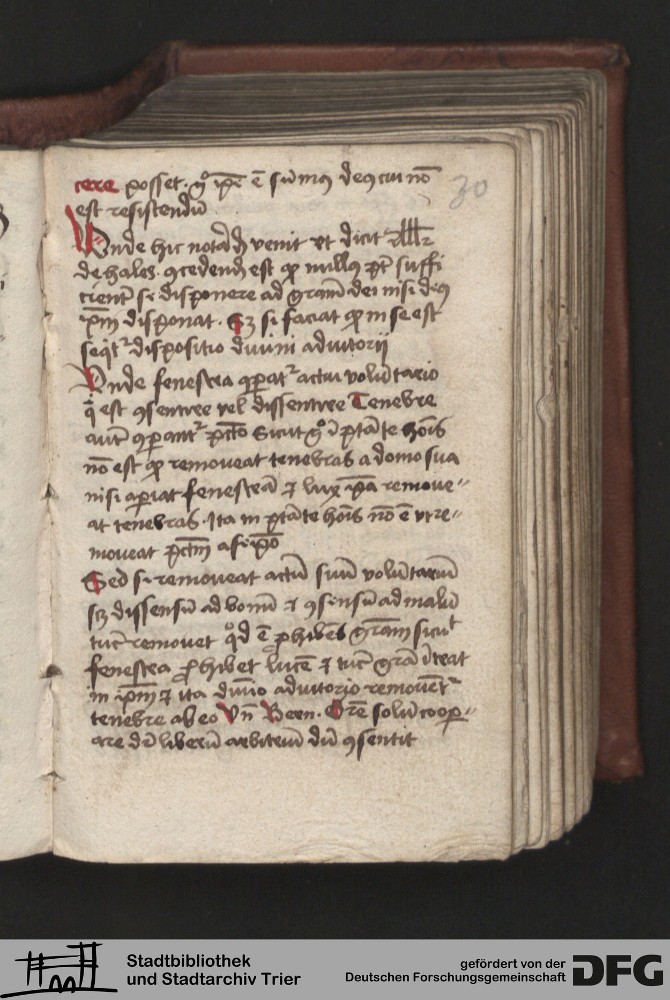 cere posset. gͦ ip̄e ē sūmꝯ deꝯ cui nō
30
est resistendū
Unde hic notadꝫ venit vt dicit Allr
de hales ꝯcedendū est qꝫ nullꝯ pt̄ suffi
cient̄ se disponere ad gram̄ dei nisi deꝯ
ip̄m disponat. Sꝫ si faciat qꝫ in se est
seqit᷑ dispositio diuini adiutorij
Unde fenestra aperat᷑ actui volūtario
q̄ est ꝯsentire vel dissentire Tenebre
aut̄ ꝯparant᷑ pctō Sicut gͦ i ptāte hoīs
nō est qꝫ remoueat tenebras a domo sua
nisi aperiat fenestrā ⁊ lux ip̄a remoue〃
at tenebras. Ita in ptāte hoīs nō ē vt re〃
moueat pctm̄ a seip̄o
Sed si remoueat actū suū voluntariū
scꝫ dissensū ad bonū ⁊ ꝯsensū ad malū
tūc remouet qͦd ē ꝓhibēs gram̄ sicut
fenestra ꝓhibet lucē ⁊ tūc grā ītrat
in ip̄m ⁊ ita diuīo adiutorio remouēt᷑
tenebre ab eo Vn̄ Bern. Cre solū cooper〃
are dr̄ liberū arbitriū dū ꝯsentit
Stadtbibliothek
und Stadtarchiv Trier
gefördert von der
Deutschen Forschungsgemeinschaft
DFG